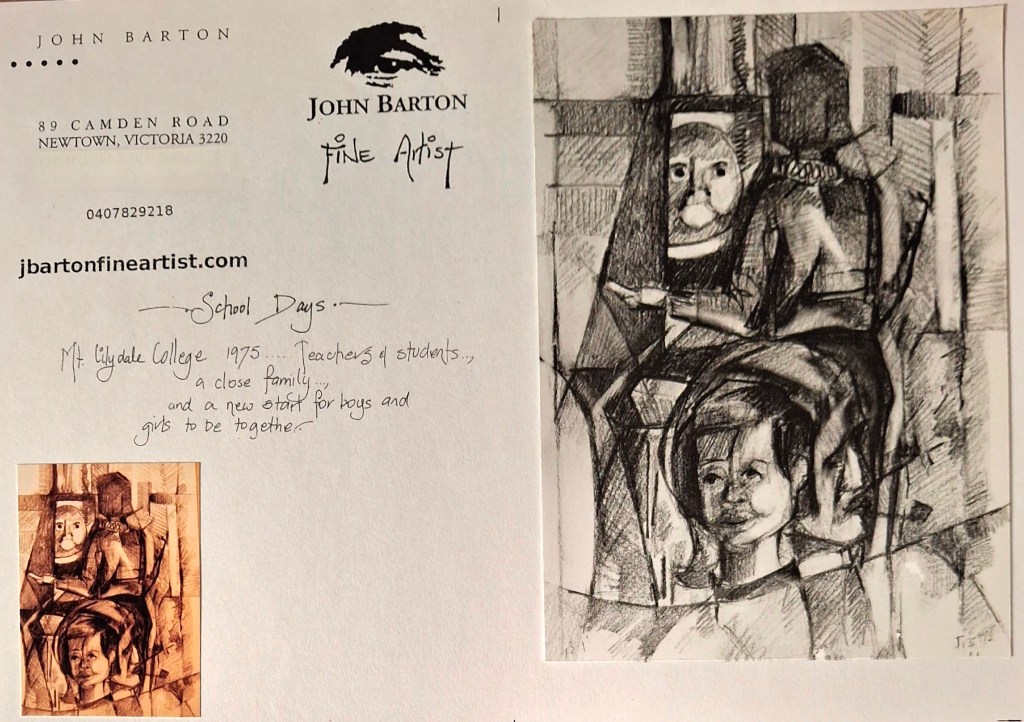 JOHN BARTON
89 CAMDEN ROAD
NEWTOWN, VICTORIA 3220
0407829218
jbartonfineartist.com
JOHN BARTON
FiNE Artist
School Days
Mt. Lilydale College 1975.... Teachers & students...,
a close family...,
and a new start for boys and
girls to be together.